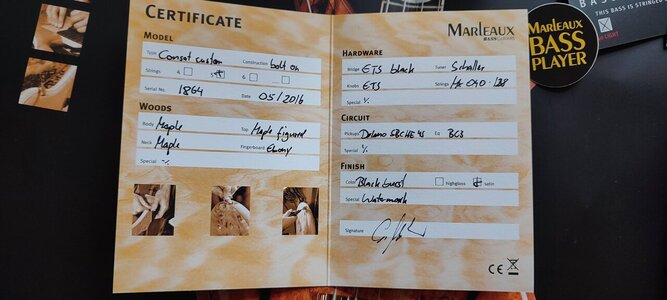 CERTIFICATE
MODEL
Type Consat custom Construction bolt on
Strings 4 5 6
Serial No. 1864 Date 05/2016
WOODS
Body Maple Top Maple figured
Neck Maple Fingerboard Ebony
Special %
MARLEAUX
BASS GUITARS
HARDWARE
Bridge ETS black Tuner Schaller
Knobs ETS Strings 040-128
Special %
CIRCUIT
Pickups Delano SBC HE 4S Eq BC3
Special %
FINISH
Color Blackburst highgloss satin
Special Watermark
Signature
CE
MARLEAUX
BASS
PLAYER
THIS BASS IS STRINGED
LIGHT